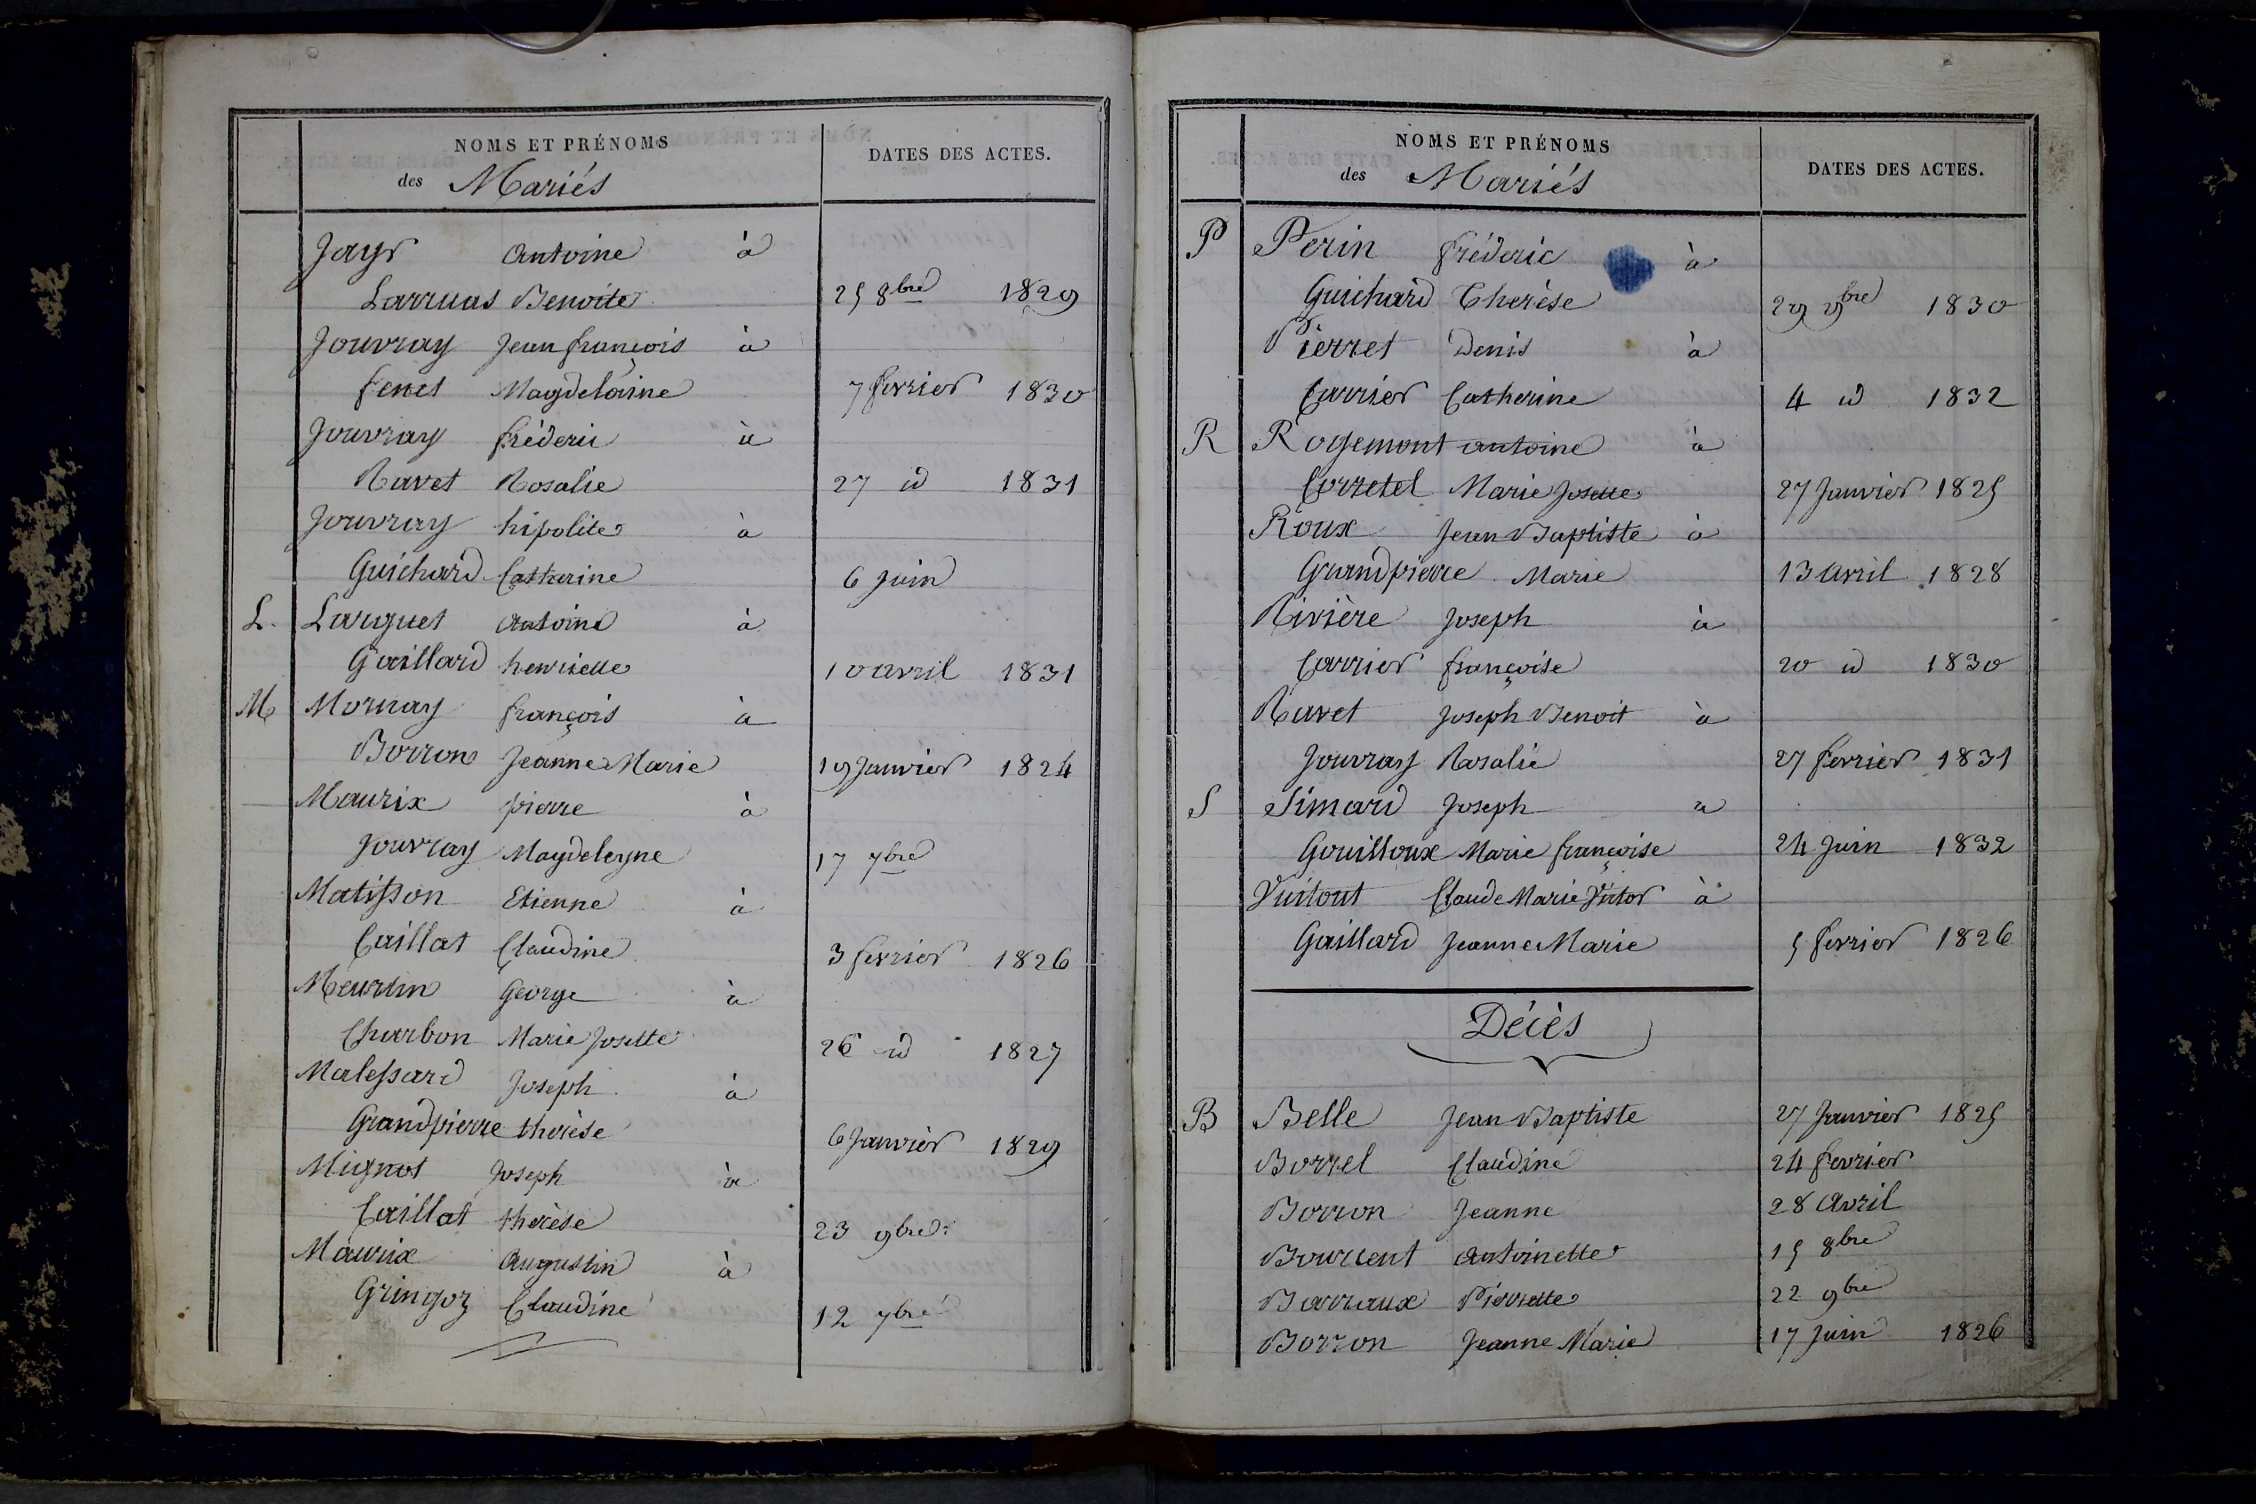 NOMS ET PRÉNOMS
des Mariés
DATES DES ACTES.
Jayr Antoine à
Larruas Benoite 25 8bre 1829
Jouvray Jean françois à
fenet Magdelaine 7 fevrier 1830
Jouvray fréderic à
Ravet Rosalie 27 id 1831
Jouvray hipolite à
Guichard Catherine 6 juin
L. Larguet Antoine à
Gaillard henriette 10 avril 1831
M Mornay françois à
Borron Jeanne Marie 19 Janvier 1824
Maurix pierre à
Jouvray Magdeleyne 17 7bre
Matisson Etienne à
Caillat Claudine 3 fevrier 1826
Meurlin George à
Charbon Marie Josette 26 id 1827
Malessard Joseph à
Grandpierre therèse 6 Janvier 1829
Mignot Joseph à
Caillat therèse 23 9bre
Maurix Augustin à
Gringoz Claudine 12 7bre
NOMS ET PRÉNOMS
des Mariés
DATES DES ACTES.
P Perin fréderic à
Guichard Therèse 29 9bre 1830
Pierret Denis à
Carrier Catherine 4 id 1832
R Rogemont antoine à
Corretel Marie Josette 27 Janvier 1825
Roux Jean Baptiste à
Grandpierre Marie 13 avril 1828
Rivière Joseph à
Carrier françoise 20 id 1830
Ravet Joseph Benoit à
Jouvray Rosalie 27 fevrier 1831
S Simard Joseph a
Gouilloux Marie françoise 24 Juin 1832
Vuitout Claude Marie Victor à
Gaillard Jeanne Marie 5 fevrier 1826
Décès
B Belle Jean Baptiste 27 Janvier 1825
Borrel Claudine 24 fevrier
Borron Jeanne 28 Avril
Bourcent antoinette 15 8bre
Barraux Pierrette 22 9bre
Borron Jeanne Marie 17 Juin 1826